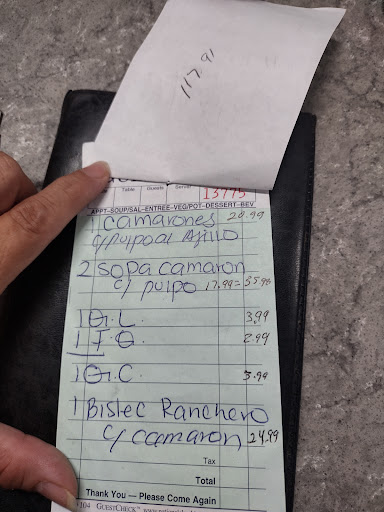 117.91
Table Guests Server 13775
APPT-SOUP/SAL-ENTREE-VEG/POT-DESSERT-BEV
1 camarones 20.99
c/pulpo al Ajillo
2 sopa camaron
c/ pulpo 17.99= 35.98
1 G.L. 3.99
1 J.G. 2.99
1 G.C. 3.99
1 Bistec Ranchero
c/ camaron 24.99
Tax
Total
Thank You — Please Come Again
104 GUESTCHECK™